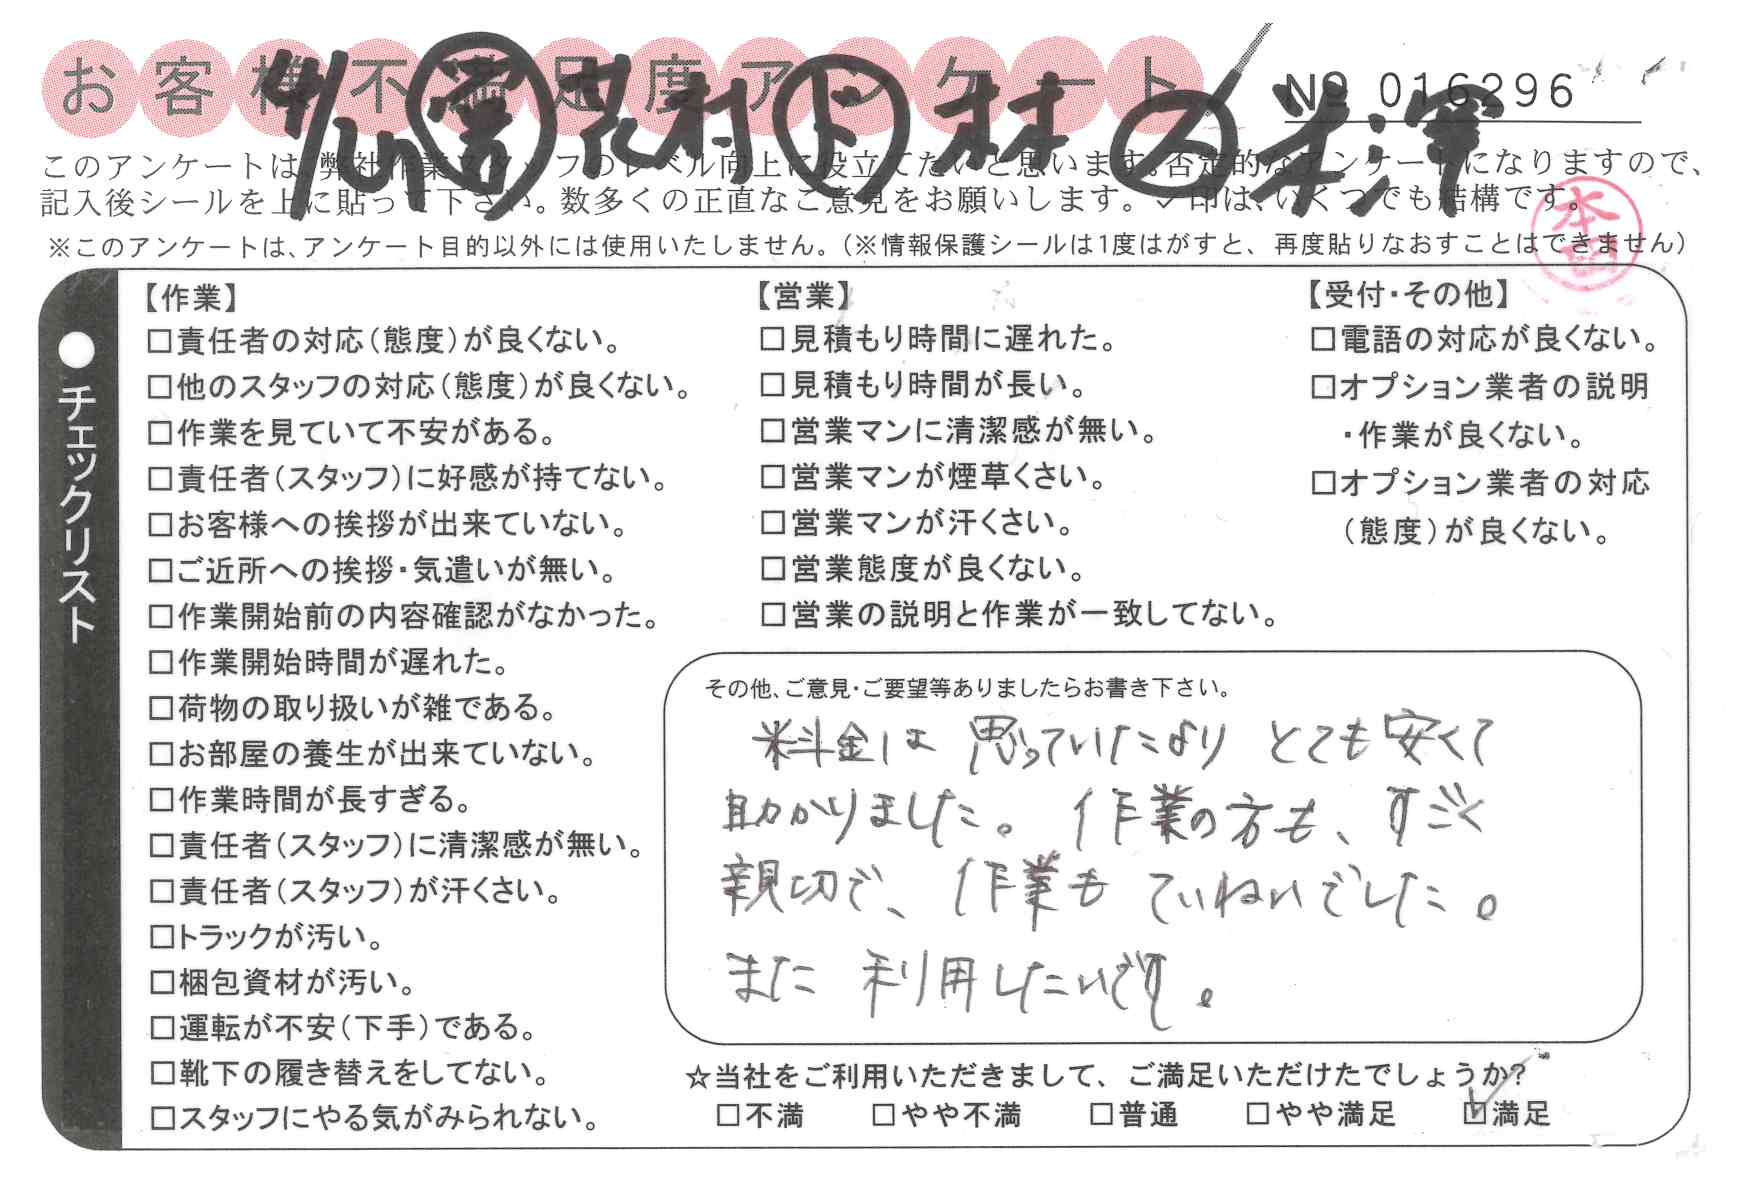 お客様不満足度アンケート
№ 016296
このアンケートは、弊社作業スタッフのレベル向上に役立てたいと思います。否定的なアンケートになりますので、
記入後シールを上に貼って下さい。数多くの正直なご意見をお願いします。✓印は、いくつでも結構です。
※このアンケートは、アンケート目的以外には使用いたしません。(※情報保護シールは1度はがすと、再度貼りなおすことはできません)
●チェックリスト
【作業】
□責任者の対応(態度)が良くない。
□他のスタッフの対応(態度)が良くない。
□作業を見ていて不安がある。
□責任者(スタッフ)に好感が持てない。
□お客様への挨拶が出来ていない。
□ご近所への挨拶・気遣いが無い。
□作業開始前の内容確認がなかった。
□作業開始時間が遅れた。
□荷物の取り扱いが雑である。
□お部屋の養生が出来ていない。
□作業時間が長すぎる。
□責任者(スタッフ)に清潔感が無い。
□責任者(スタッフ)が汗くさい。
□トラックが汚い。
□梱包資材が汚い。
□運転が不安(下手)である。
□靴下の履き替えをしてない。
□スタッフにやる気がみられない。
【営業】
□見積もり時間に遅れた。
□見積もり時間が長い。
□営業マンに清潔感が無い。
□営業マンが煙草くさい。
□営業マンが汗くさい。
□営業態度が良くない。
□営業の説明と作業が一致してない。
【受付・その他】
□電話の対応が良くない。
□オプション業者の説明
・作業が良くない。
□オプション業者の対応
(態度)が良くない。
その他、ご意見・ご要望等ありましたらお書き下さい。
料金は思っていたよりとても安くて
助かりました。作業の方も、すごく
親切で、作業もていねいでした。
また利用したいです。
☆当社をご利用いただきまして、ご満足いただけたでしょうか?
□不満 □やや不満 □普通 □やや満足 ☑満足